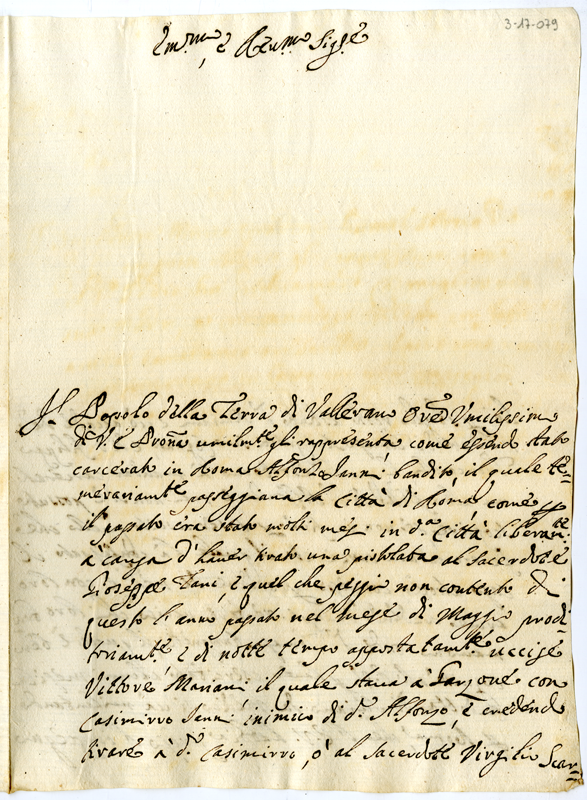 3-17-079
Em.mo e Reu.mo Sig.re
Il Popolo della Terra di Vallerano Ore Vmilissimo
di V. E. Pron̄a umilm.te gli rappresenta come essendo stato
carcerato in Roma Alfonzo Janni bandito, il quale te=
merariam.te passeggiaua la Città di Roma, come p
il passato era stato molti mesi in d.a Città liberam.te
à causa d'hauer tirato una pistolata al Sacerdote
Gioseppe Tani, e quel che peggio non contento di
questo l'anno passato nel mese di Maggio prodi=
toriam.te e di notte tempo appostatam.te uccise
Vittore Mariani il quale staua à Garzone con
Casimirro Janni inimico di d.o Alfonzo, e credendo
tirare à d.o Casimirro, ò al Sacerdote Virgilio Scar=